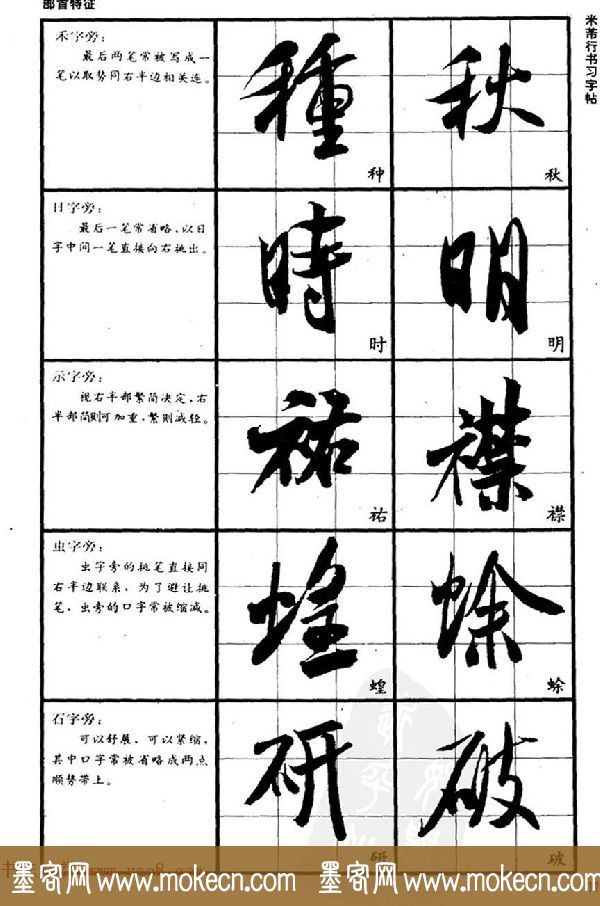 部首特征
米芾行书习字帖
禾字旁：
最后两笔常被写成一
笔以取势同右半边相关连。
種
种
秋
秋
日字旁：
最后一笔常省略、以日
字中间一笔直接向右挑出。
時
时
明
明
示字旁：
视右半部繁简决定，右
半部简则可加重，繁则减轻。
祐
祐
襟
襟
虫字旁：
虫字旁的挑笔直接同
右半边联系，为了避让挑
笔，虫旁的口字常被缩减。
蝗
蝗
蜍
蜍
石字旁：
可以舒展、可以紧缩，
其中口字常被省略成两点
顺势带上。
研
研
破
破
墨客网 www.mokecn.com 墨客网 www.mokecn.com 墨